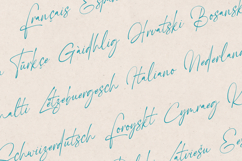 Français Espa
Türkçe Gàidhlig Hrvatski Bosansk
Malti Lëtzebuergesch Italiano Nederlan
Schwizerdütsch Føroyskt Cymraeg K
Latviešu E